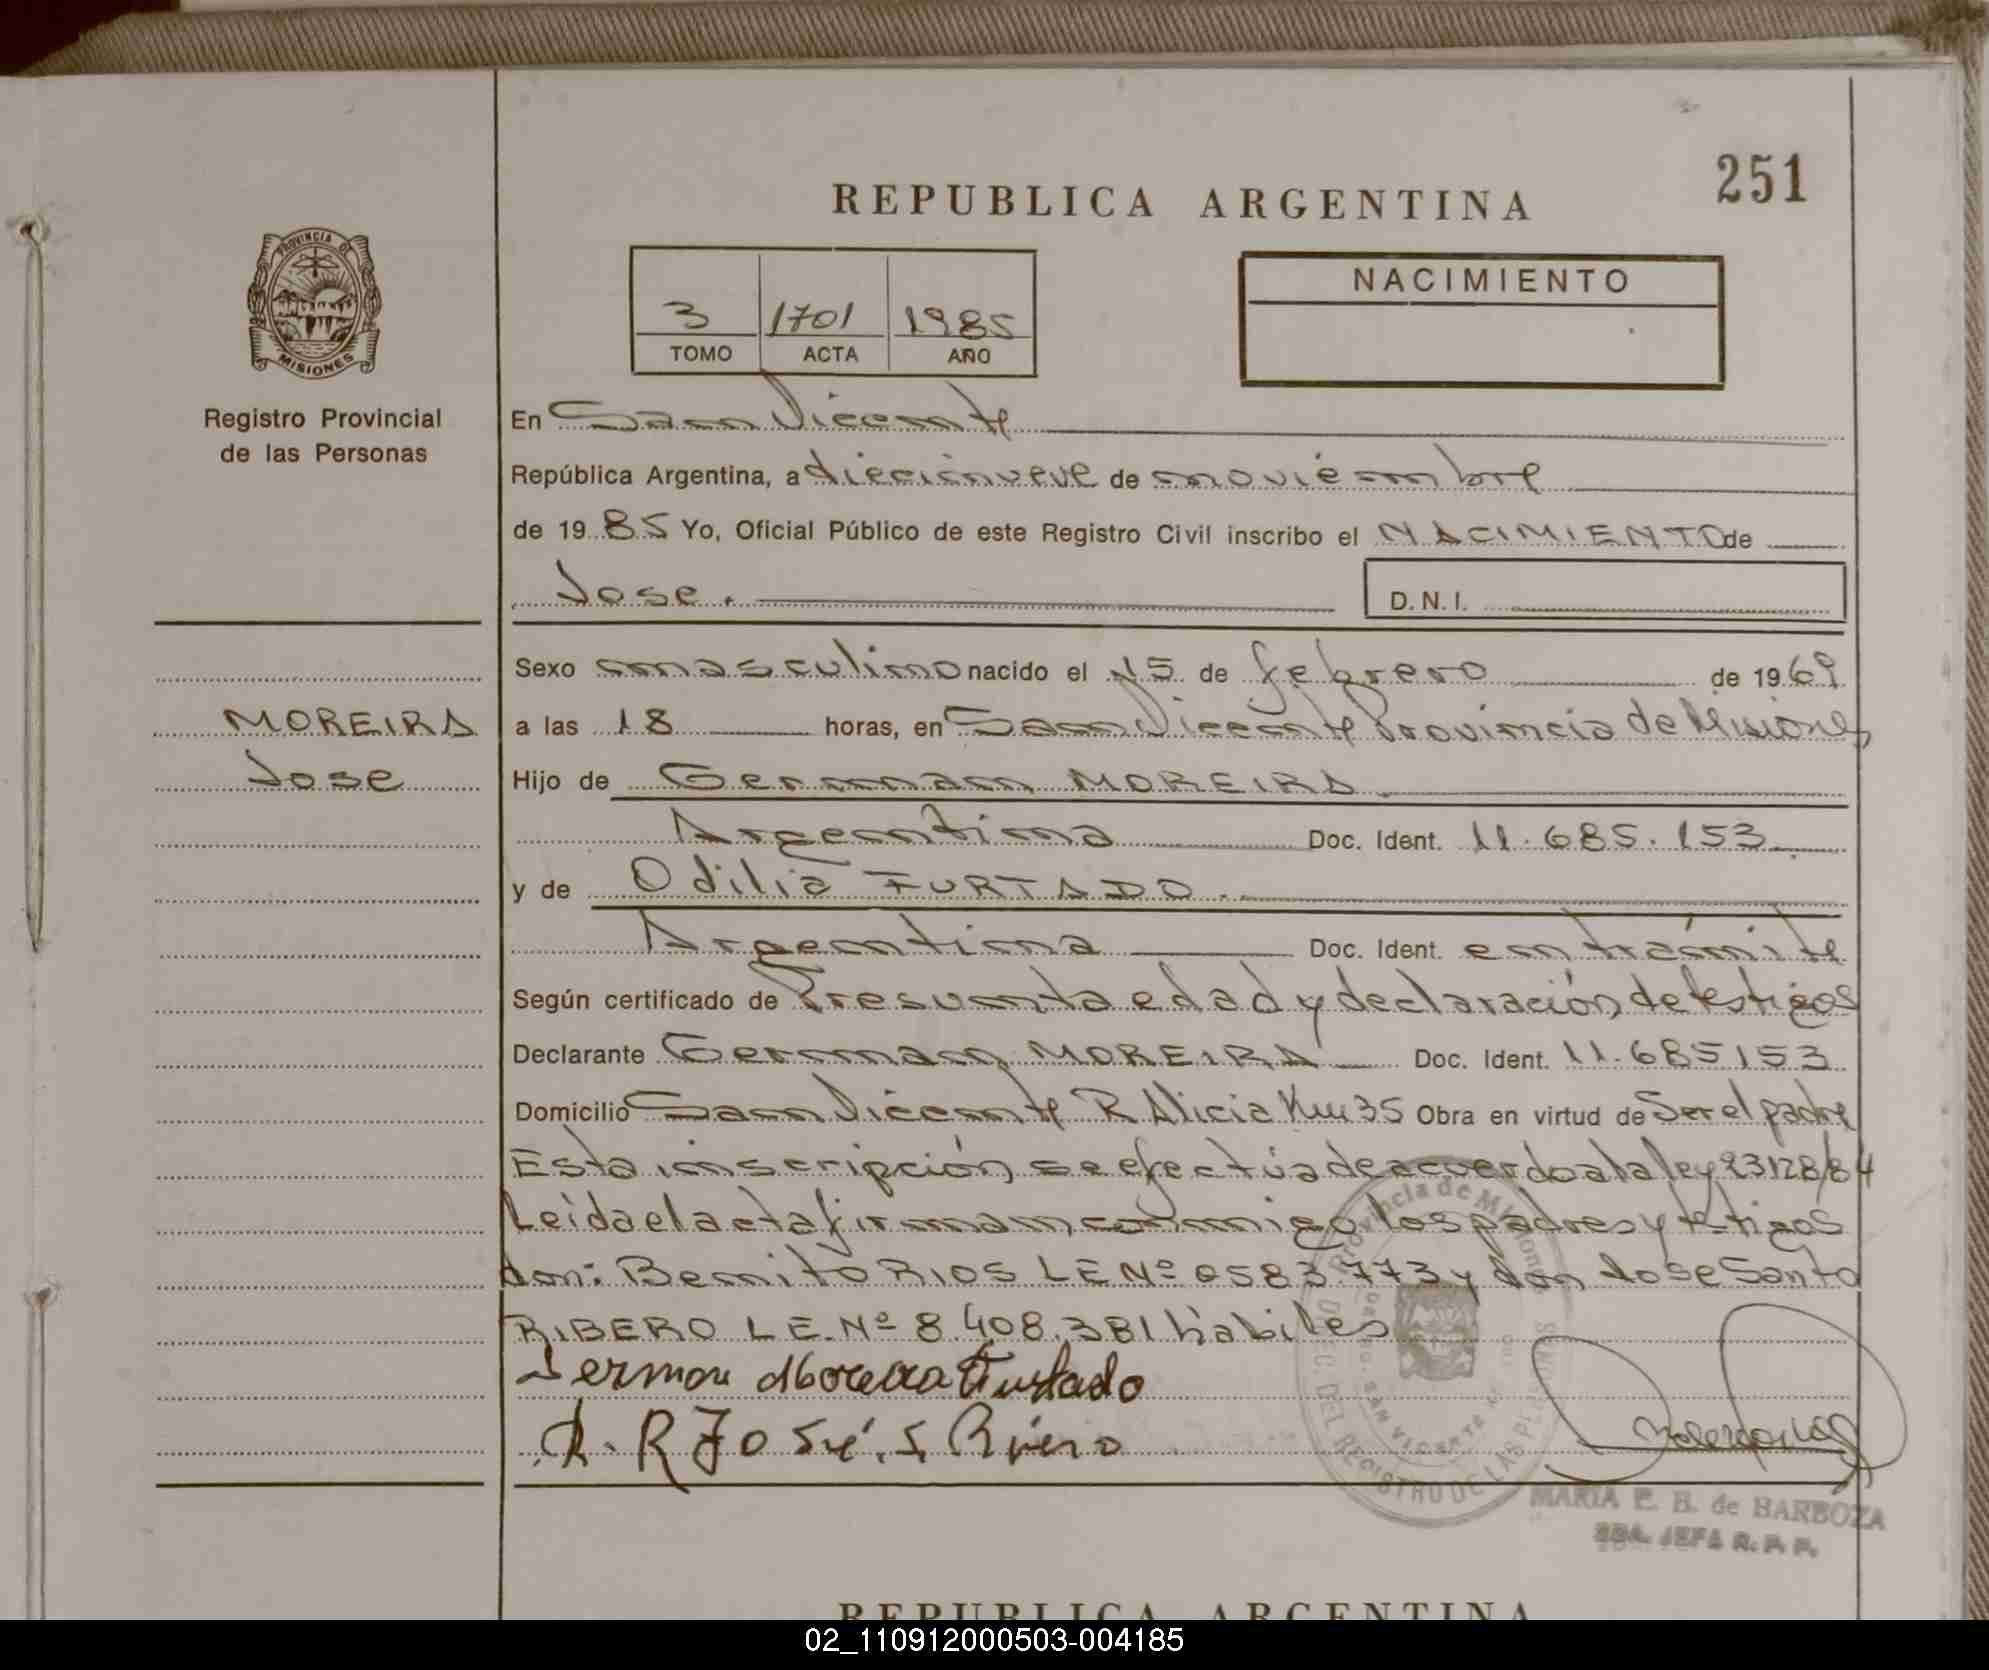 251
REPUBLICA ARGENTINA
PROVINCIA DE
MISIONES
Registro Provincial
de las Personas
3 1701 1985
TOMO ACTA AÑO
NACIMIENTO
En San Vicente
República Argentina, a diecinueve de noviembre
de 1985 Yo, Oficial Público de este Registro Civil inscribo el NACIMIENTO de
Jose.
D.N.I.
Sexo masculino nacido el 15 de febrero de 1969
MOREIRA
Jose
a las 18 horas, en San Vicente Provincia de Misiones
Hijo de German MOREIRA
Argentina Doc. Ident. 11.685.153
y de Odilia FURTADO.
Argentina Doc. Ident. en trámite
Según certificado de Presunta edad y declaración de testigos
Declarante German MOREIRA Doc. Ident. 11.685153
Domicilio San Vicente R Alicia Km 35 Obra en virtud de Ser el padre
Esta inscripción se efectúa de acuerdo a la ley 23128/84
Leida el acta firman conmigo los padres y testigos
don: Benito RIOS LE Nº 0583.773 y don Jose Santo
RIBERO L E. Nº 8.408.381 hábiles
German Moreira Furtado
R José. S. Rivero
Provincia de Misiones
DEL REGISTRO DE LAS
SAN VICENTE
MARIA E. B. de BARBOZA
JEFA R. P. P.
REPUBLICA ARGENTINA
02_110912000503-004185